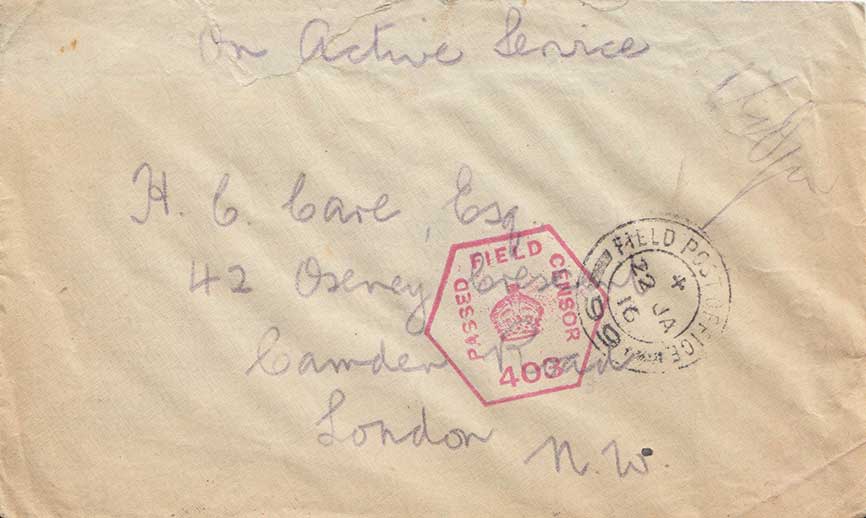 On Active Service
H. C. Care, Esq.
42 Oseney Crescent
Camden Road
London
N.W.
PASSED FIELD CENSOR
403
FIELD POST OFFICE
22 JA
16